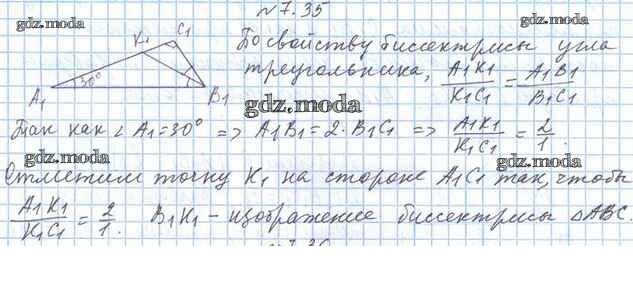 N 7.35
gdz.moda
gdz.moda
K1 C1
30°
A1 B1
По свойству биссектрисы угла
треугольника, A1K1/K1C1 = A1B1/B1C1
gdz.moda
gdz.moda
Так как ∠A1=30° => A1B1=2·B1C1 => A1K1/K1C1 = 2/1.
gdz.moda
gdz.moda
Отметим точку K1 на стороне A1C1 так, чтобы
A1K1/K1C1 = 2/1. B1K1 - изображение биссектрисы △ABC.
gdz.moda